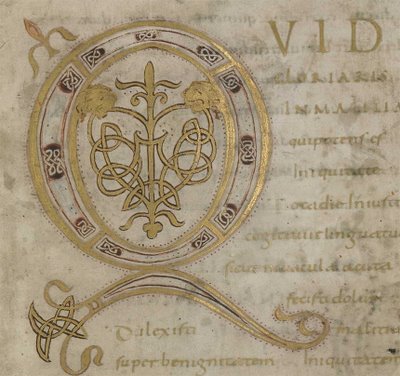 QVID
GLORIARIS
INMALITIA
quipotenses
Iniquitate
Totadie Iniusti
cogitauit lingua
sicut nouacula acuta
fecisti dolu
Dilexisti malitia
super benignitatem Iniquitatem